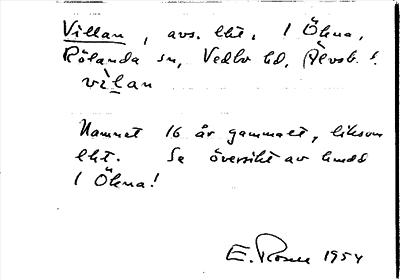 Villan, avs. lht, 1 Ökna,
Rölanda sn, Vedbo hd, Älvsb. l.
vìlan
Namnet 16 år gammalt, liksom
lht. Se översikt av hmdd
1 Ökna!
E. Rosell 1954